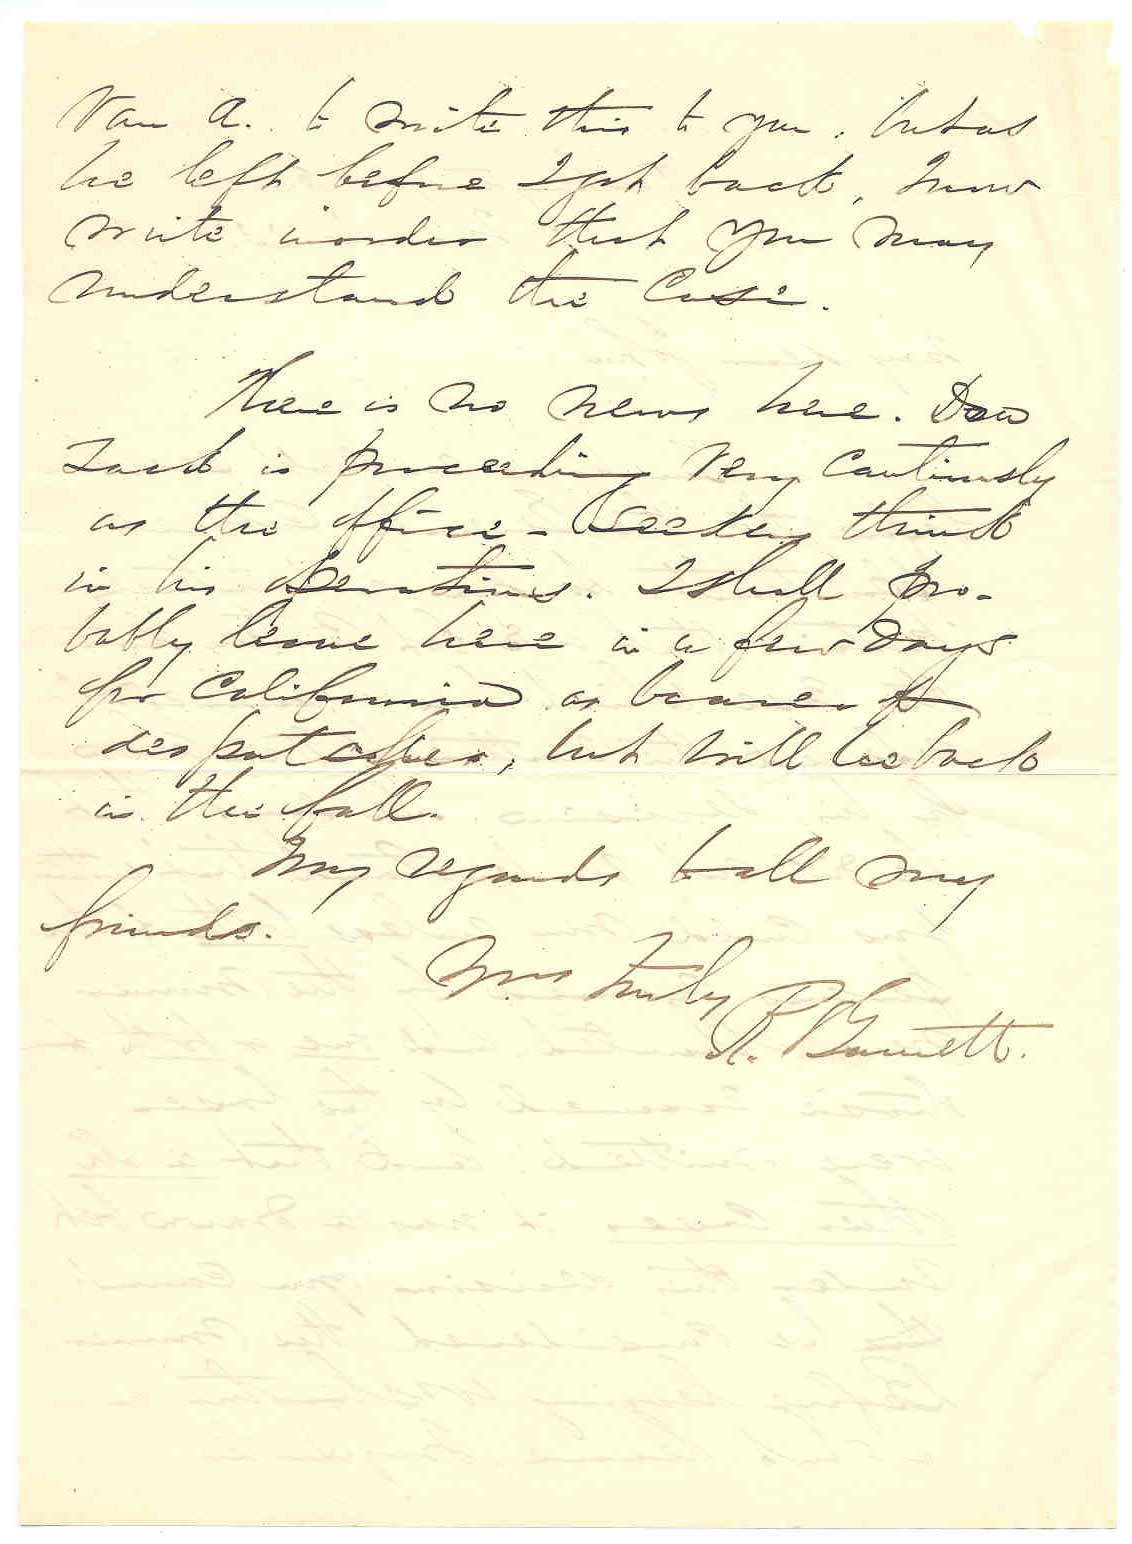 Van A. to write this to you, but as
he left before I got back, I now
write in order that you may
understand the case.
There is no news here. Old
Zack is proceeding very cautiously
as the office-seekers think
in his operations. I shall pro-
bably leave here in a few days
for California as bearer of
despatches, but will be back
in the fall.
My regards to all my
friends.
Yrs Truly
R. Garnett.